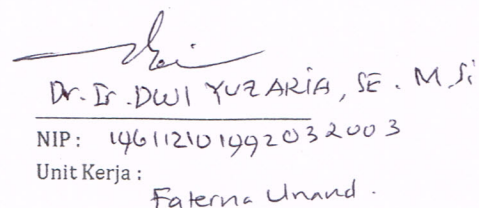 Dr. Ir. DWI YUZARIA, SE. M.Si
NIP : 196112101992032003
Unit Kerja :
Faterna Unand.